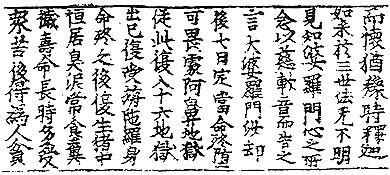 而懷猶豫時釋迦
如来於三世法无不明
見知婆羅門心之所
念以慈軟音而告之
言大婆羅門汝却
後七日定當命終墮
可畏處阿鼻地獄
從此復入十六地獄
出已復旃陁羅身
命終之後復生猪中
恒居臭泥常食糞
穢壽命長時多受
衆苦後得為人貧